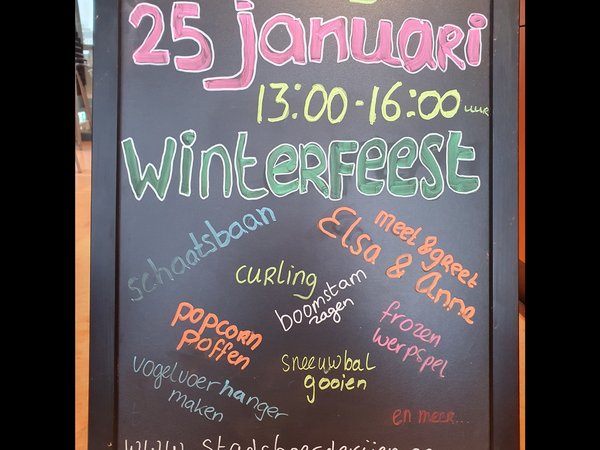 25 januari
13:00-16:00 uur
Winterfeest
schaatsbaan
meet & greet
Elsa & Anna
curling
boomstam
zagen
popcorn
poffen
frozen
werpspel
sneeuwbal
gooien
vogelvoerhanger
maken
en meer...